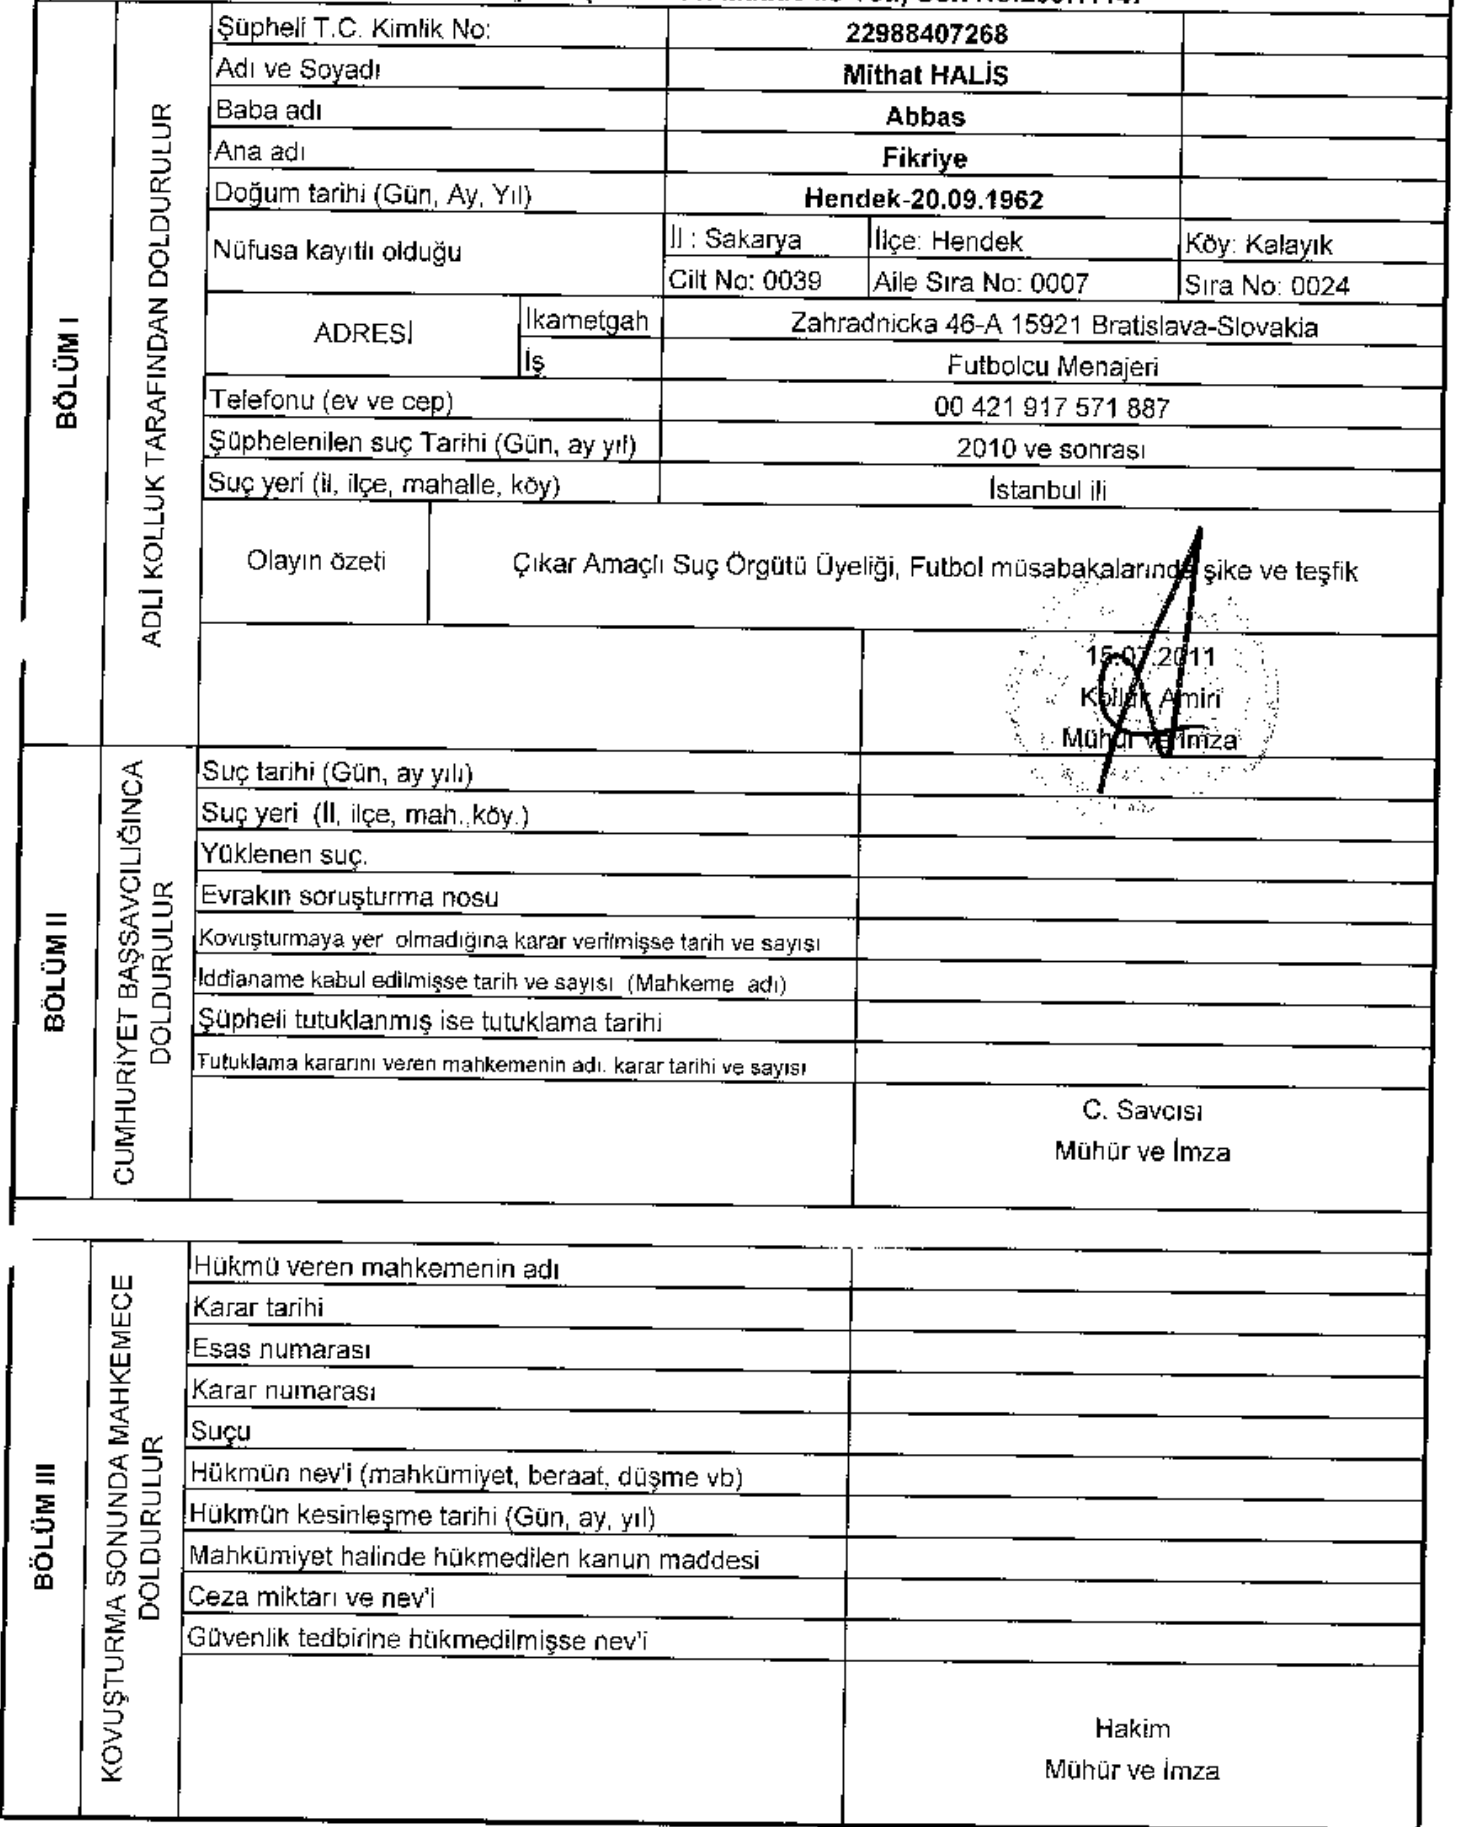 Şüpheli T.C. Kimlik No: 22988407268
Adı ve Soyadı Mithat HALİS
Baba adı Abbas
Ana adı Fikriye
Doğum tarihi (Gün, Ay, Yıl) Hendek-20.09.1962
Nüfusa kayıtlı olduğu
İl : Sakarya İlçe: Hendek Köy: Kalayık
Cilt No: 0039 Aile Sıra No: 0007 Sıra No: 0024
ADRESİ
İkametgah Zahradnicka 46-A 15921 Bratislava-Slovakia
İş Futbolcu Menajeri
Telefonu (ev ve cep) 00 421 917 571 887
Şüphelenilen suç Tarihi (Gün, ay yıl) 2010 ve sonrası
Suç yeri (il, ilçe, mahalle, köy) İstanbul ili
Olayın özeti Çıkar Amaçlı Suç Örgütü Üyeliği, Futbol müsabakalarında şike ve teşfik
15.07.2011
Kolluk Amiri
Mühür ve İmza
BÖLÜM I
ADLİ KOLLUK TARAFINDAN DOLDURULUR
Suç tarihi (Gün, ay yılı)
Suç yeri (İl, ilçe, mah.,köy.)
Yüklenen suç.
Evrakın soruşturma nosu
Kovuşturmaya yer olmadığına karar verilmişse tarih ve sayısı
İddianame kabul edilmişse tarih ve sayısı (Mahkeme adı)
Şüpheli tutuklanmış ise tutuklama tarihi
Tutuklama kararını veren mahkemenin adı. karar tarihi ve sayısı
C. Savcısı
Mühür ve İmza
BÖLÜM II
CUMHURİYET BAŞSAVCILIĞINCA
DOLDURULUR
Hükmü veren mahkemenin adı
Karar tarihi
Esas numarası
Karar numarası
Suçu
Hükmün nev'i (mahkümiyet, beraat, düşme vb)
Hükmün kesinleşme tarihi (Gün, ay, yıl)
Mahkümiyet halinde hükmedilen kanun maddesi
Ceza miktarı ve nev'i
Güvenlik tedbirine hükmedilmişse nev'i
Hakim
Mühür ve İmza
BÖLÜM III
KOVUŞTURMA SONUNDA MAHKEMECE
DOLDURULUR